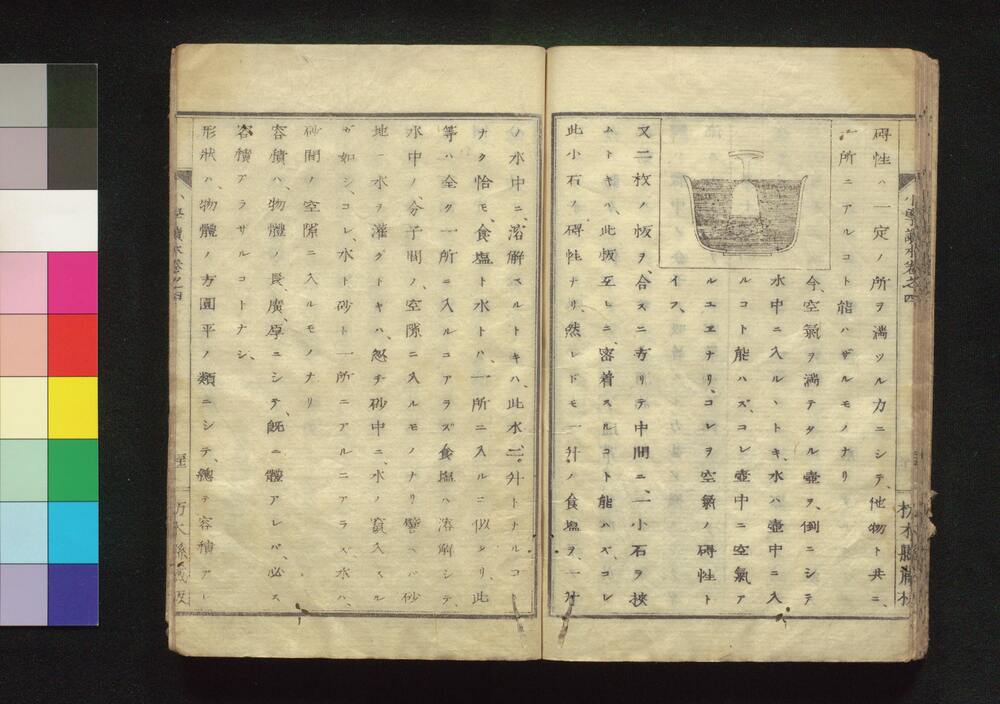 碍性ハ一定ノ所ヲ滿ツル力ニシテ、他物ト共ニ、
一所ニアルコト能ハザルモノナリ
今、空氣ヲ滿テタル壺ヲ、倒ニシテ
水中ニ入ルヽトキ、水ハ壺中ニ入
ルコト能ハズ、コレ壺中ニ空氣ア
ルユヱナリ、コレヲ空氣ノ碍性ト
イフ、
又二枚ノ板ヲ、合スニ方リテ中間ニ、一小石ヲ挾
ムトキハ、此板互ヒニ、密着スルコト能ハズ、コレ
此小石ノ碍性ナリ、然レドモ一升ノ食塩ヲ、一升
ノ水中ニ、溶解スルトキハ、此水、二升トナルコ
ナク恰モ、食塩ト水トハ、一所ニ入ルニ似タリ、此
等ハ全ク一所ニ入ルコアラズ食塩ハ溶解シテ、
水中ノ、分子間ノ、空隙ニ入ルモノナリ譬ヘバ砂
地ニ水ヲ灌グトキハ、忽チ砂中ニ、水ノ竄入スル
ガ如シ、コレ、水ト砂ト一所ニアルニアラズ、水ハ、
砂間ノ空隙ニ入ルモノナリ
容積ハ、物體ノ長、廣、厚ニシテ、既ニ體アレバ、必ス、
容積アラサルコトナシ、
形狀ハ、物體ノ方圓平ノ類ニシテ、總テ容積アレ
小學讀本卷之四
栃木縣
小學讀本卷之四